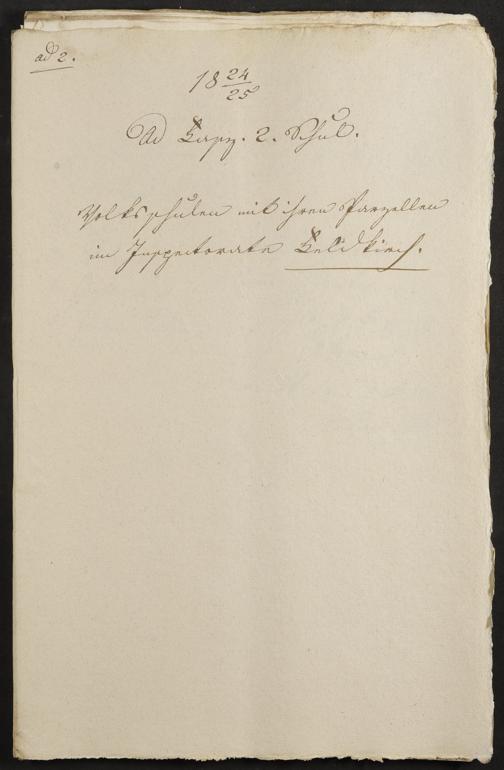 ad 2.
18 24/25
Ad Fasz. 2. Schul.
Volksschulen mit ihren Parzellen
im Inspectorate Feldkirch.